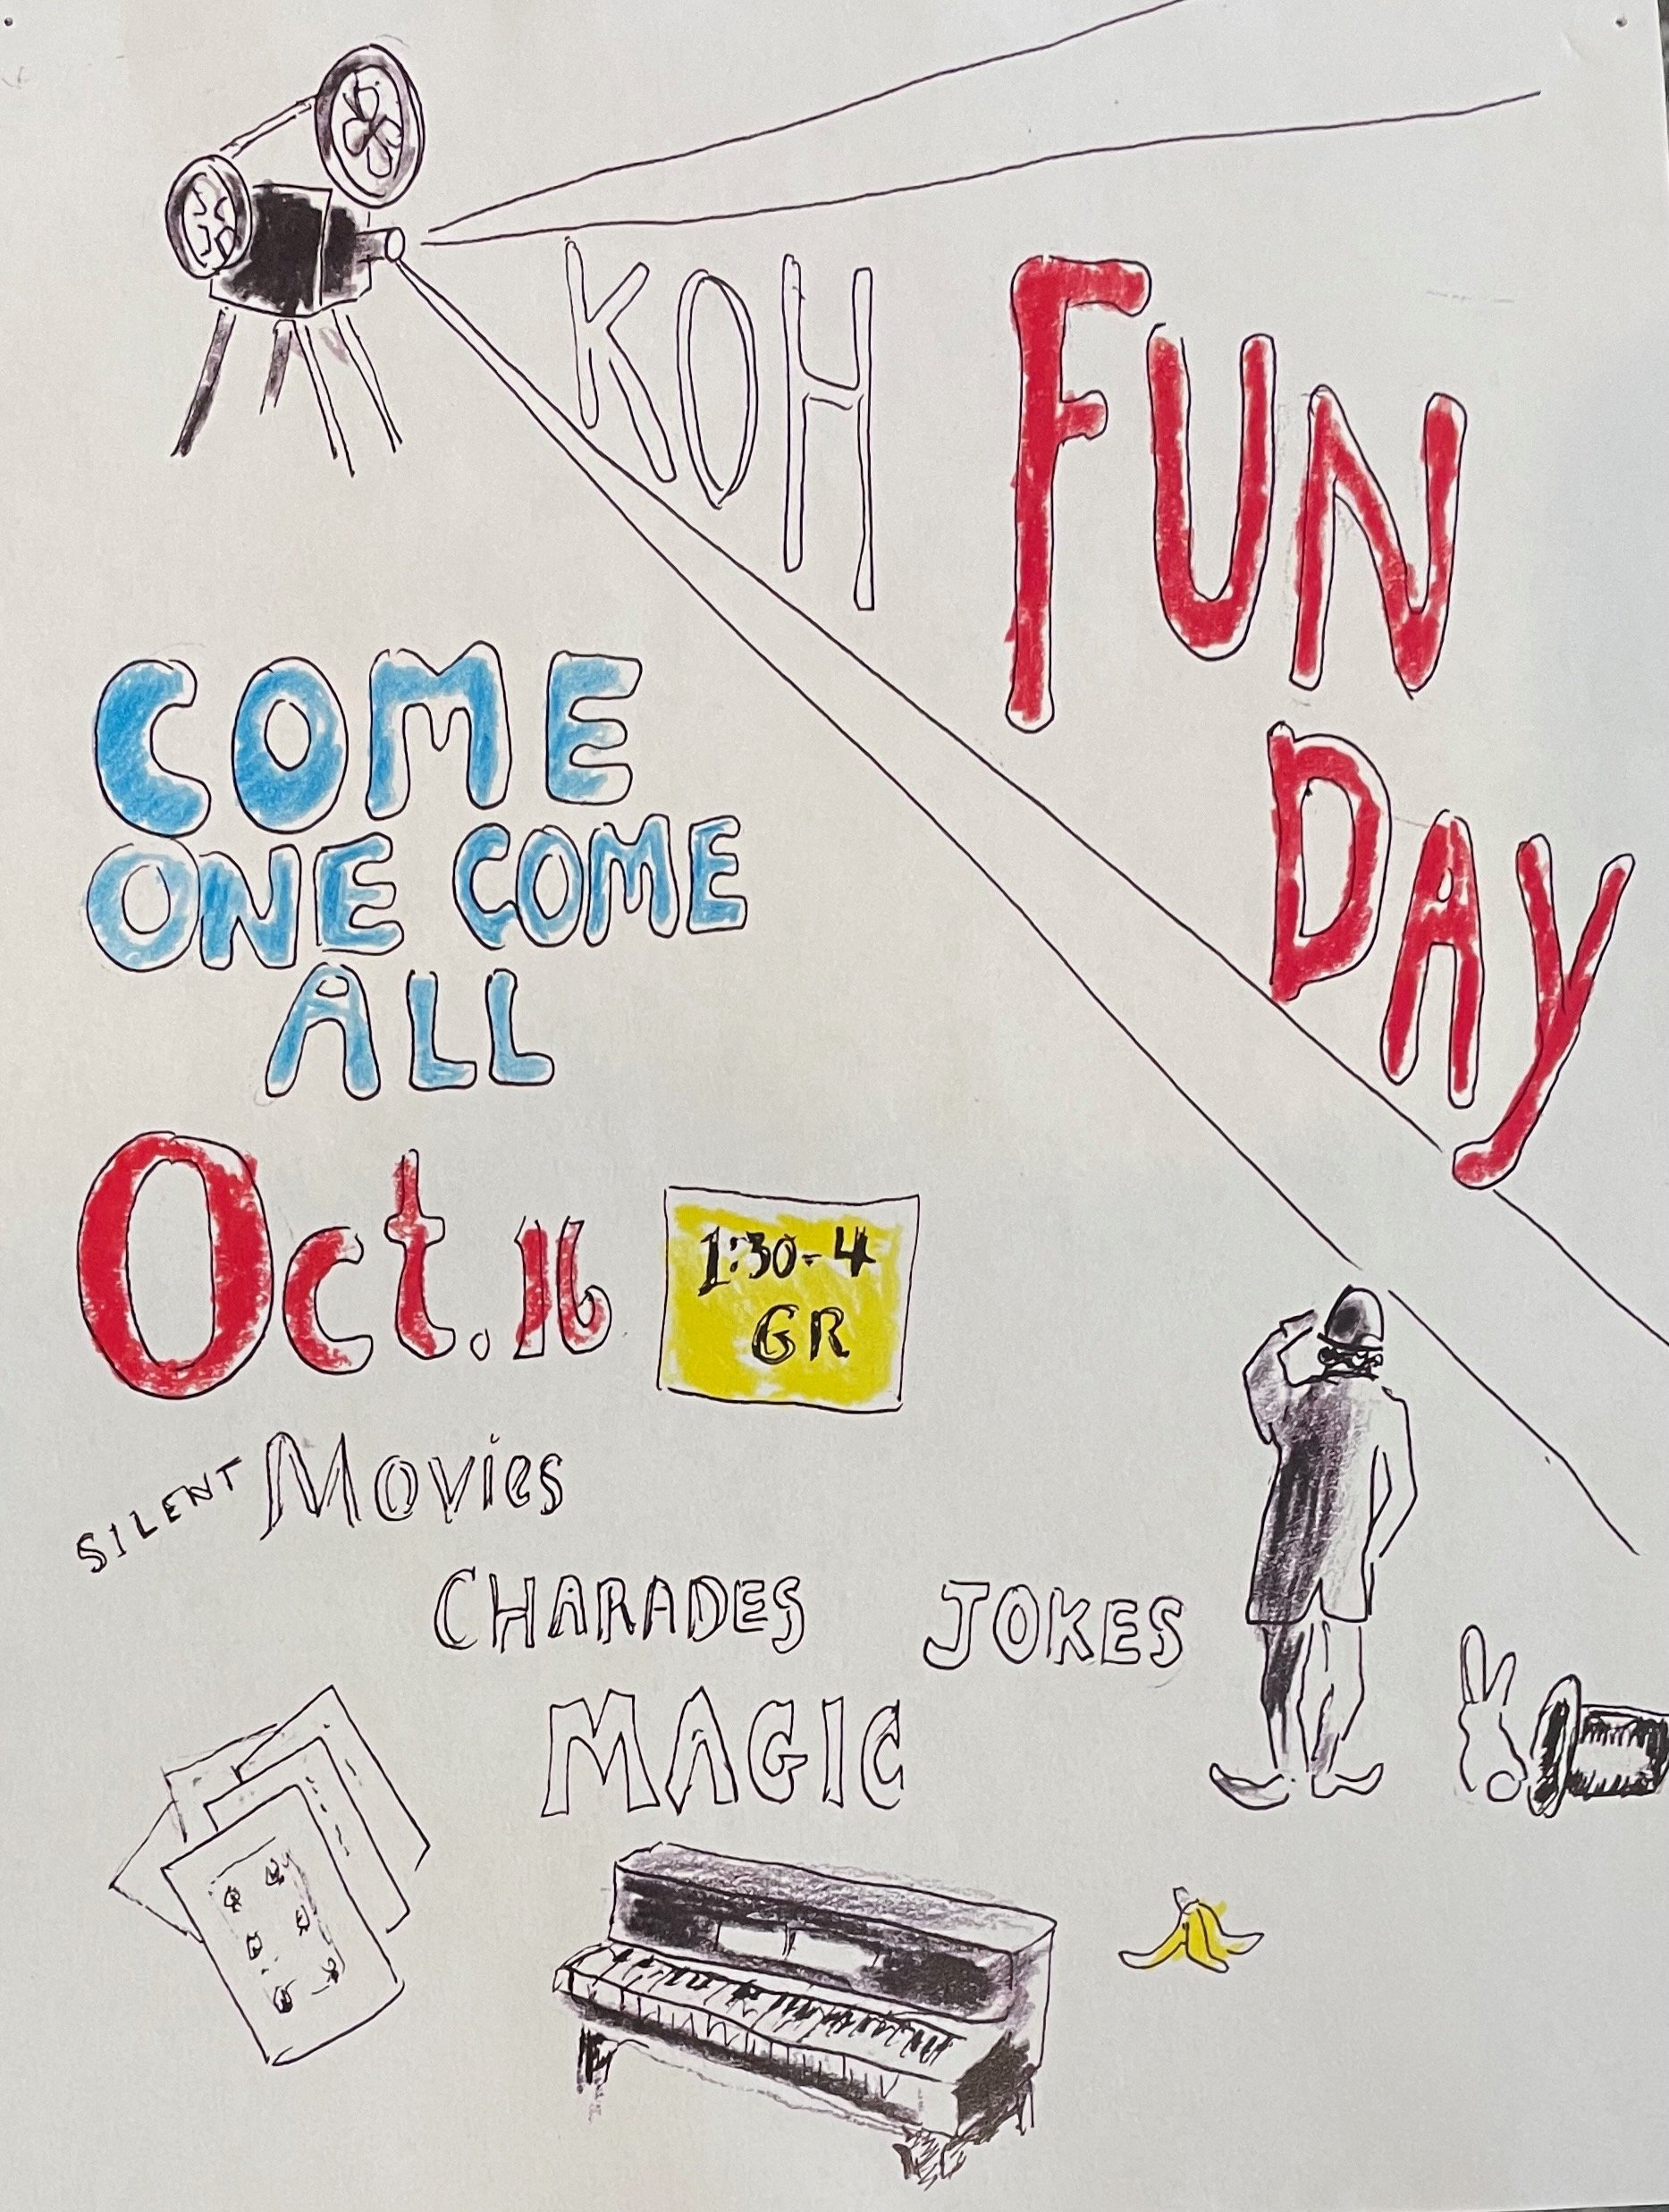 KOH FUN
DAY
COME
ONE COME
ALL
Oct. 16
1:30-4
GR
SILENT Movies
CHARADES
JOKES
MAGIC